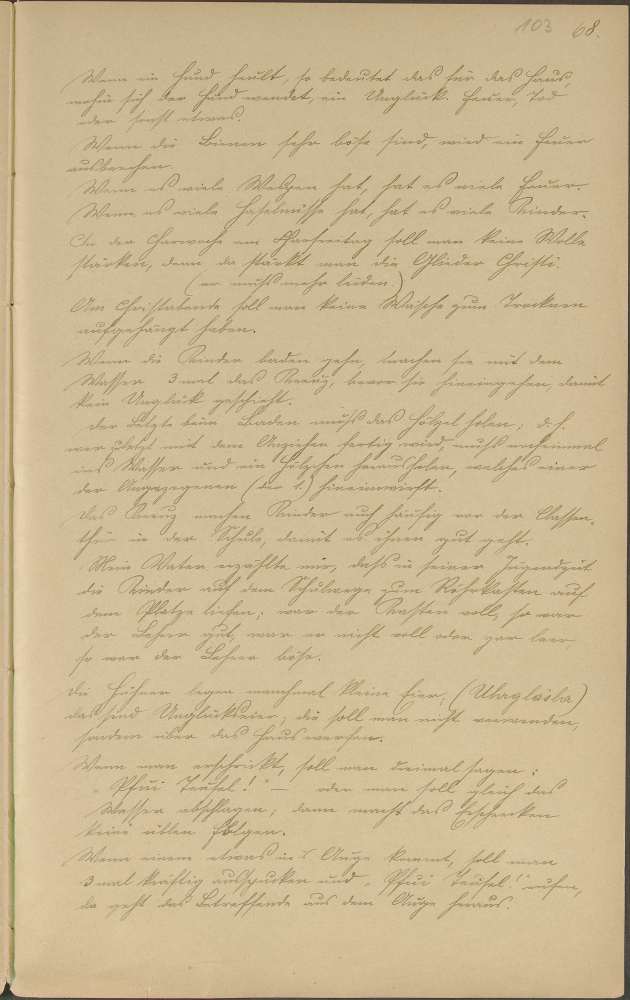 103 68.
Wenn ein Hund heult, so bedeutet das für das Haus,
wohin sich der Hund wendet, ein Unglück. Feuer, Tod
oder sonst etwas.
Wenn die Bienen sehr böse sind, wird ein Feuer
ausbrechen.
Wenn es viele Wespen hat, hat es viele Feuer.
Wenn es viele Haselnüsse hat, hat es viele Kinder.
In der Charwoche am Charfreitag soll man keine Wolle
stärken, denn da stärkt man die Glieder Christi.
(er muss mehr leiden.)
Am Christabende soll man keine Wäsche zum Trocknen
aufgehängt haben.
Wenn die Kinder baden gehn, machen sie mit dem
Wasser 3 mal das Kreuz, bevor sie hineingehen, damit
kein Unglück geschieht.
Der Letzte beim Baden muss das Hölzel holen; d. h.
wer zuletzt mit dem Anziehen fertig wird, muss nocheinmal
ins Wasser und ein Hölzchen herausholen, welches einer
der Angezogenen (der 1.) hineinwirft.
Das Kreuz machen Kinder auch häufig vor der Classen-
thür in der Schule, damit es ihnen gut geht.
Mein Vater erzählte mir, dass in seiner Jugendzeit
die Kinder auf dem Schulwege zum Röhrkasten auf
dem Platze liefen; war der Kasten voll, so war
der Lehrer gut, war er nicht voll oder gar leer,
so war der Lehrer böse.
Die Hühner legen manchmal kleine Eier, (Uhrgläsla)
das sind Unglückseier, die soll man nicht verwenden,
sondern über das Haus werfen.
Wenn man erschrickt, soll man dreimal sagen:
„Pfui Teufel!" — oder man soll gleich das
Wasser abschlagen; dann macht das Erschrecken
keine üblen Folgen.
Wenn einem etwas in's Auge kommt, soll man
3 mal kräftig ausspucken und „Pfui Teufel!" rufen,
da geht das Betreffende aus dem Auge heraus.